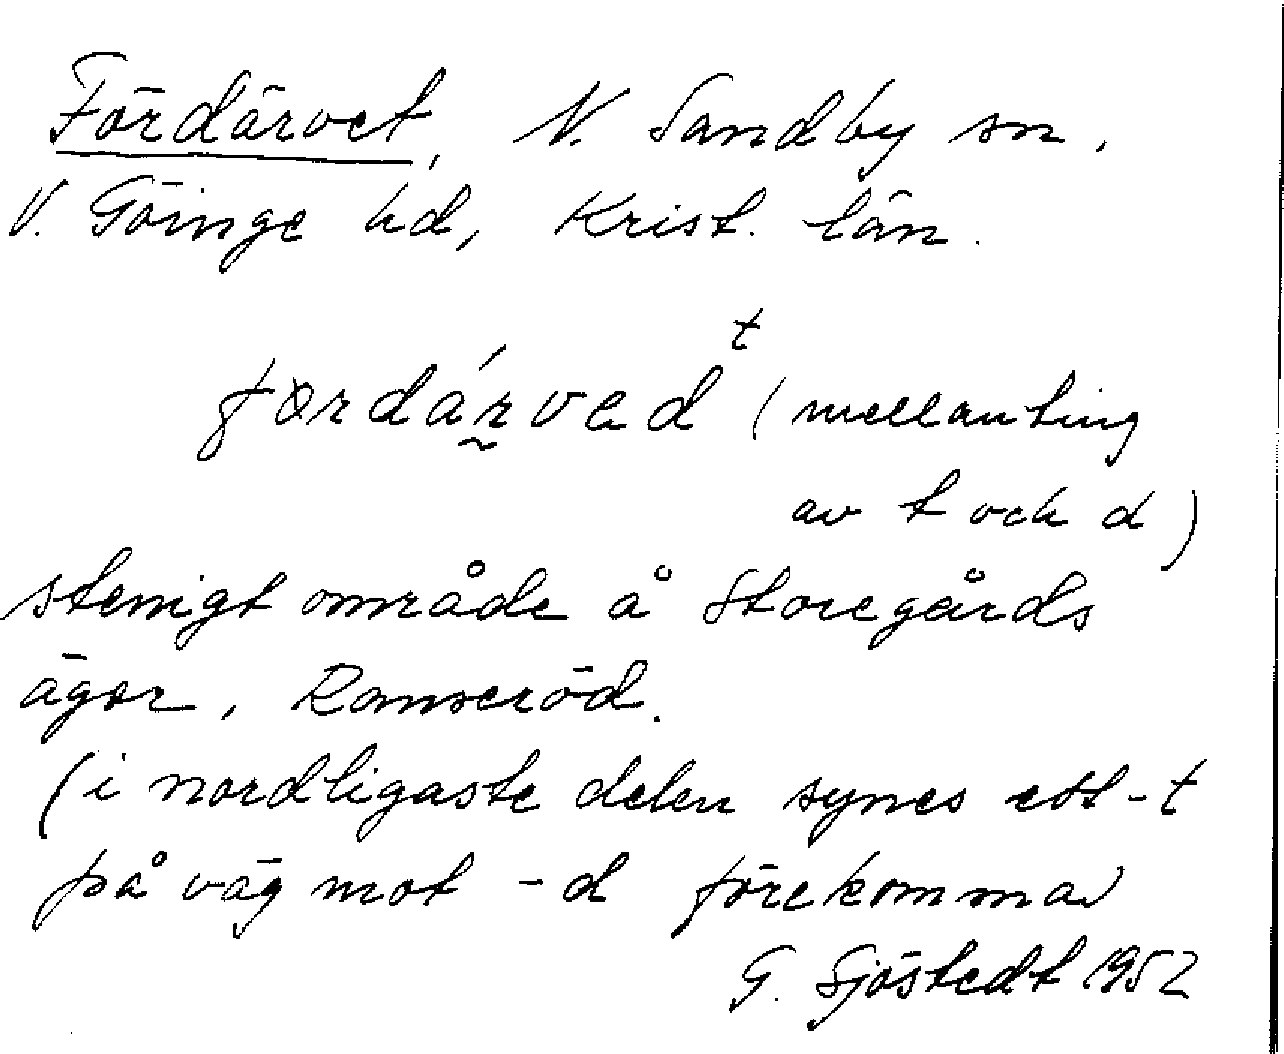 Fördärvet, N. Sandby sn.
V. Göinge hd, Krist. län.
t
fərdárved (mellanting
av t och d)
stenigt område å Storegårds
ägor, Ranseröd.
(i nordligaste delen synes ett -t
på väg mot -d förekomma)
G. Sjöstedt 1952